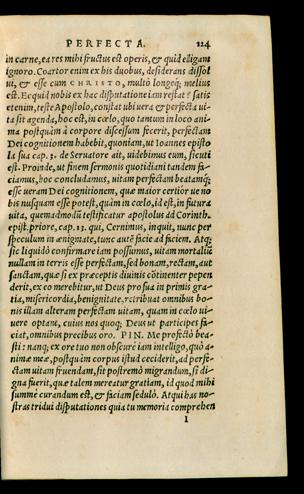 PERFECTA. 124
in carne, ea res mihi fructus est operis, & quid elligam
ignoro. Coartor enim ex his duobus, desiderans dissol
ui, & esse cum CHRISTO, multò longeq; melius
est. Ecquid nobis ex hac disputatione iam restat? satis
etenim, teste Apostolo, constat ubi uera & perfecta ui-
ta sit agenda, hoc est, in cœlo, quo tantum in loco ani
ma postquàm à corpore discessum fecerit, perfectam
Dei cognitionem habebit, quoniam, ut Ioannes episto
la sua cap. 3. de Seruatore ait, uidebimus eum, sicuti
est. Proinde, ut finem sermonis quotidiani tandem fa-
ciamus, hoc concludamus, uitam perfectam beatamq;
esse ueram Dei cognitionem, quæ maior certior ue no
bis nusquam esse potest, quàm in cœlo, id est, in futura
uita, quemadmodũ testificatur apostolus ad Corinth.
epist. priore, cap. 13. qui, Cernimus, inquit, nunc per
speculum in ænigmate, tunc autẽ facie ad faciem. Atq;
sic liquidò confirmare iam possumus, uitam mortaliũ
nullam in terris esse perfectam, sed bonam, rectam, aut
sanctam, quæ si ex præceptis diuinis cõtinenter pepen
derit, ex eo merebitur, ut Deus pro sua in primis gra-
tia, misericordia, benignitate, retribuat omnibus bo-
nis illam alteram perfectam uitam, quam in cœlo ui-
uere optani, cuius nos quoq; Deus ut participes fa-
ciat, omnibus precibus oro. PIN. Me profectò bea-
sti: nanq; ex ore tuo non obscurè iam intelligo, quò a-
nimæ meæ, postquàm corpus istud ceciderit, ad perfe-
ctam uitam fruendam, sit postremò migrandum, si di-
gna fuerit, quæ talem mereatur gratiam, id quod mihi
summè curandum est, & faciam sedulò. Atqui has no-
stras tridui disputationes quia tu memoria comprehen
I